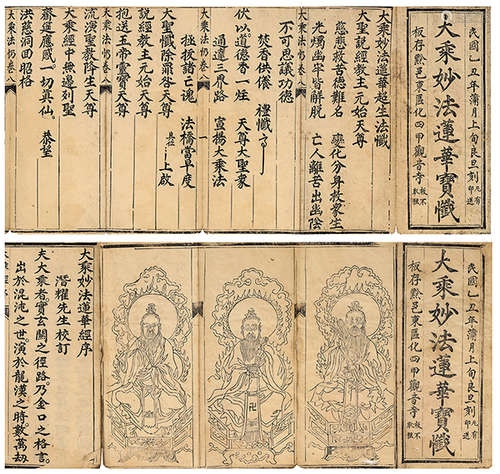 民國乙丑年蒲月上旬良旦刻
大乘妙法蓮華寶懺
板存黔邑東區化四甲觀音寺
大乘妙法蓮華超生法懺
大聖說經教主元始天尊
慈悲救苦德難名 變化分身救衆生
光燭幽牢皆解脫 亡人離苦出幽陰
大乘法懺卷八
不可思議功德
焚香供養 禮懺
伏以道德香一炷 天尊大聖衆
通達三界路 宣揚大乘法
大乘法懺卷八 一
拯拔諸亡魂 法橋當早度
大聖懺除罪咎天尊 具位 上啟
說經教主元始天尊
抱送五帝靈寶天尊
大乘法懺卷八
流演聖教降生天尊
大乘經中無邊列聖
齋筵應感一切真仙 恭望
洪慈洞回昭格
大乘法懺卷八
民國乙丑年蒲月上旬良旦刻
大乘妙法蓮華寶懺
板存黔邑東區化四甲觀音寺
卍
大乘妙法蓮華經序
潛耀先生校訂
夫大乘者實玄關之徑路乃金口之格言。
出於混沌之世演於龍漢之時數萬劫